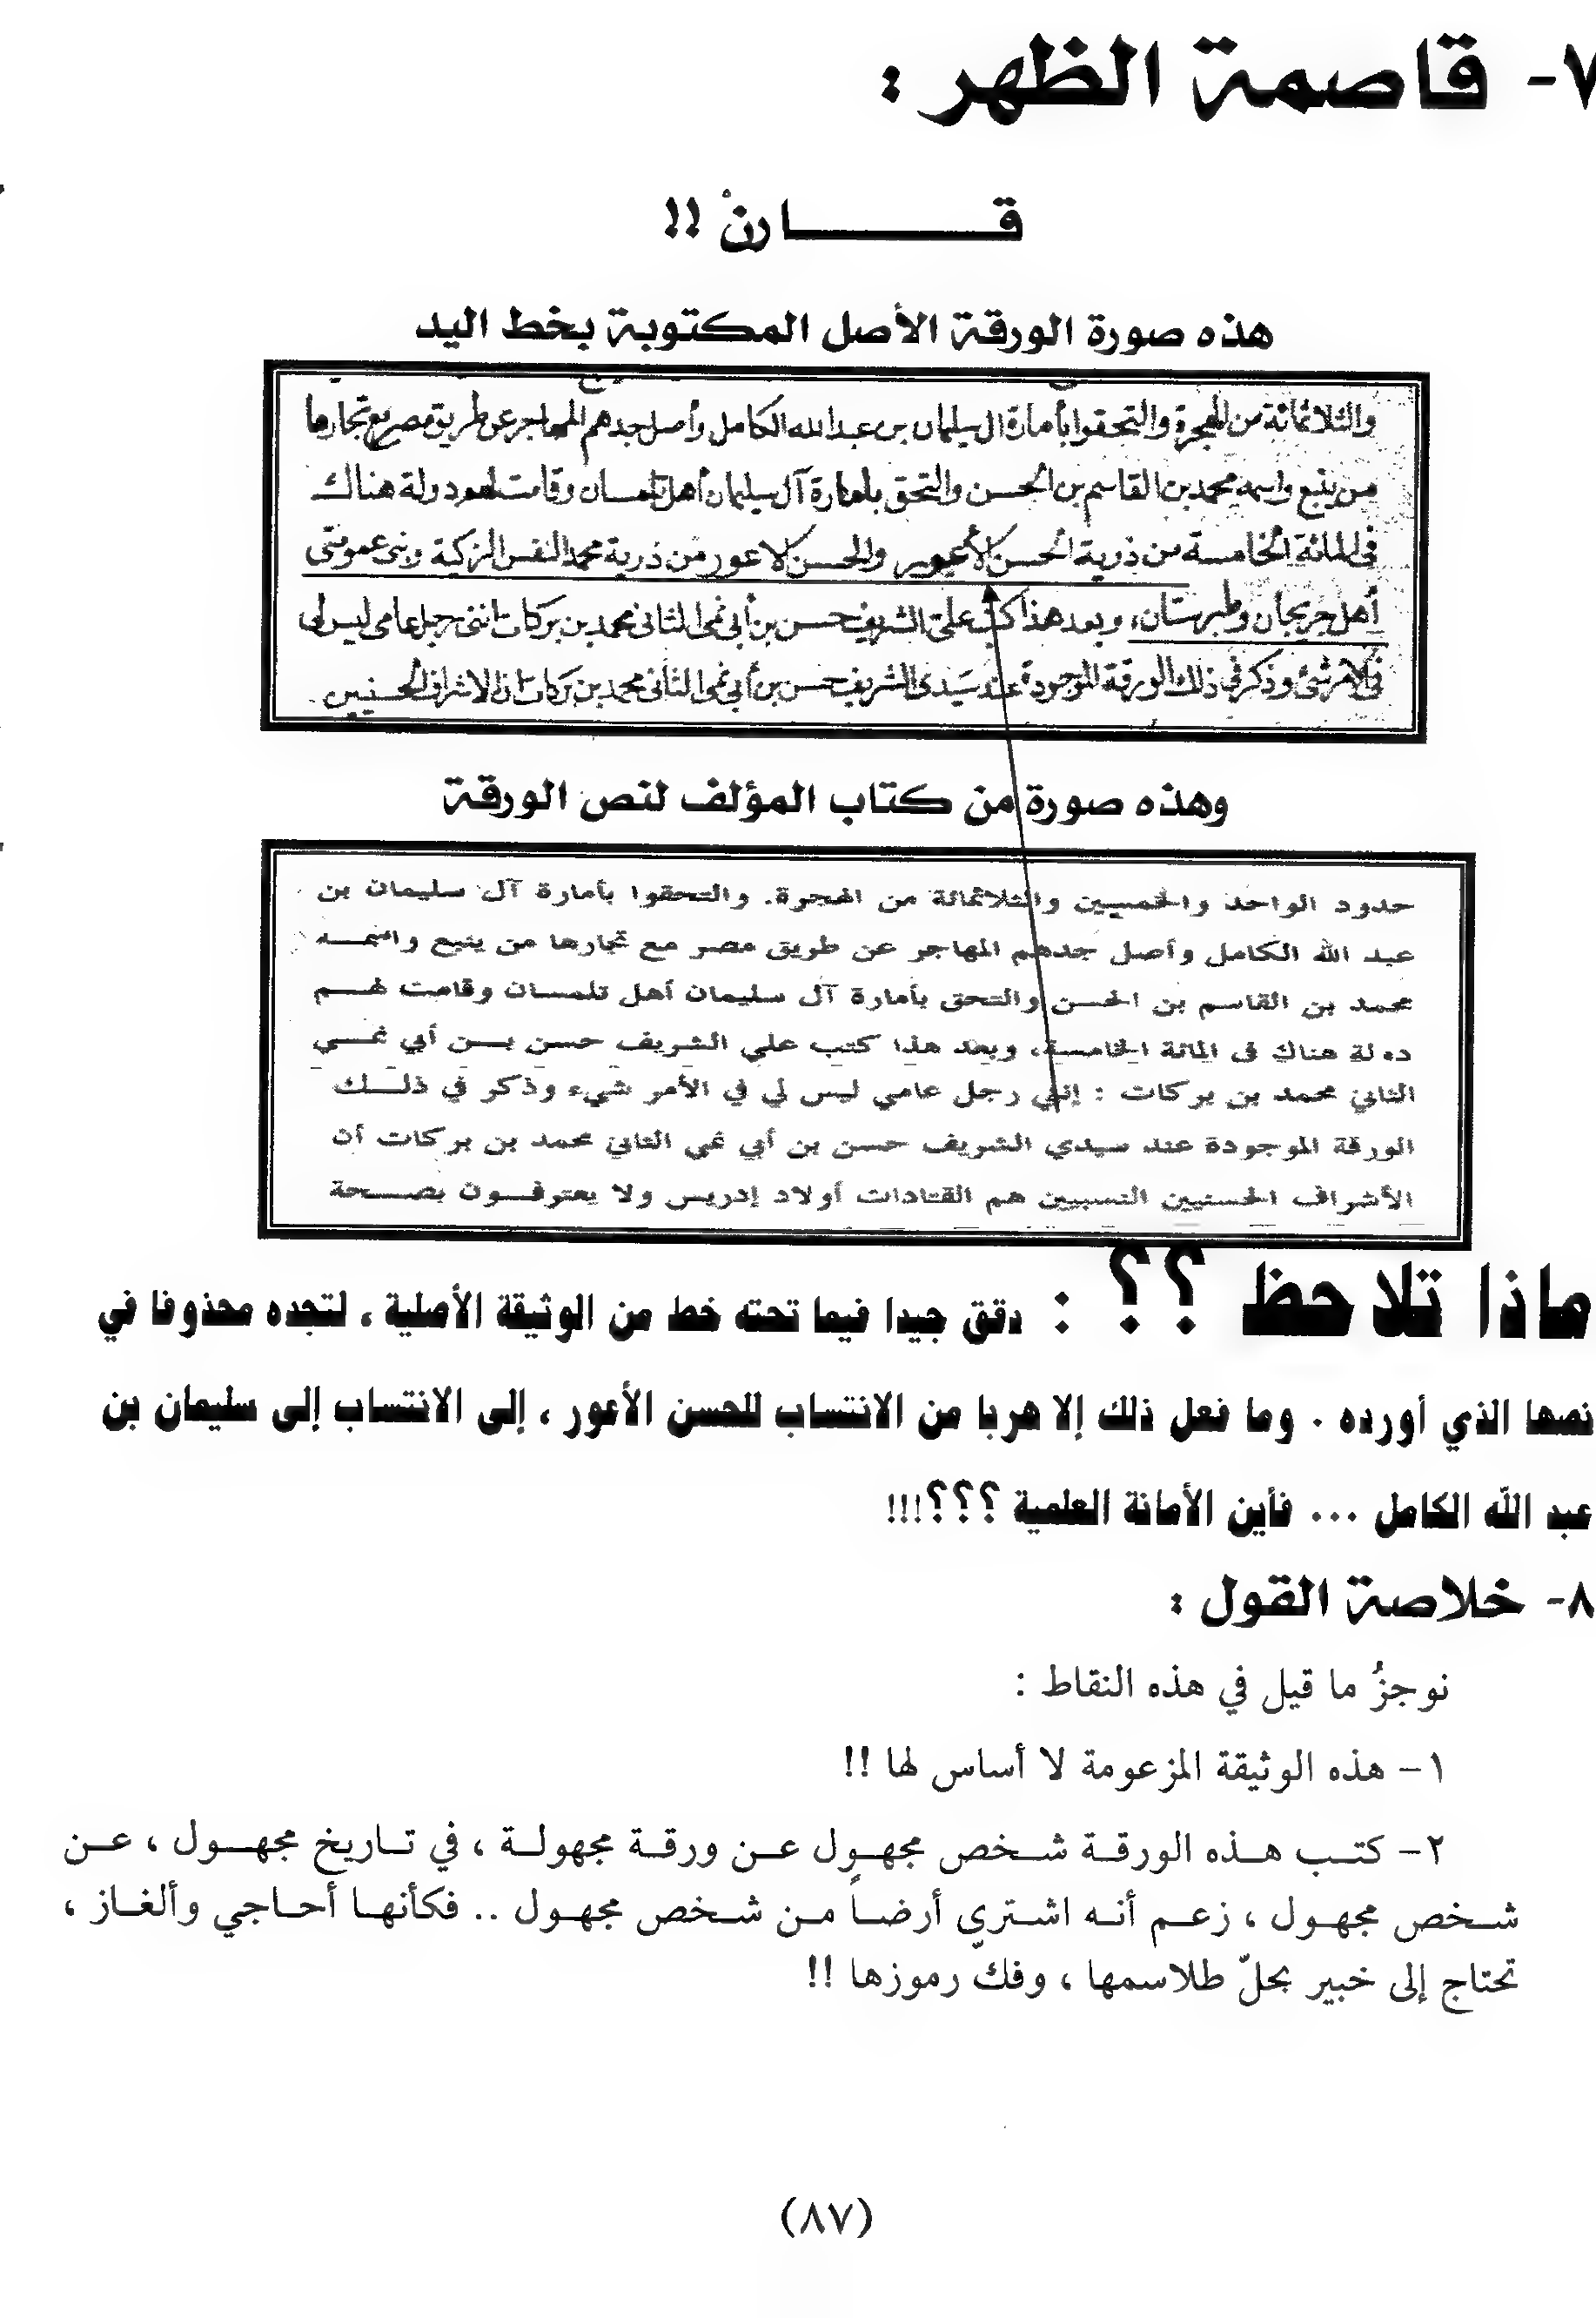 ٧- قاصمة الظهر :
قــــــارنْ !!
هذه صورة الورقة الأصل المكتوبة بخط اليد
والثلاثمائة من الهجرة والتحقوا بأمارة ال سليمان بن عبد الله الكامل وأصل جدهم المهاجر عن طريق مصر مع تجارها
من ينبع واسمه محمد بن القاسم بن الحسن والتحق بأمارة آل سليمان أهل تلمسان وقامت لهم دولة هناك
في المائة الخامسة من ذرية الحسن الأعور والحسن الاعور من ذرية محمد النفس الزكية وبني عمومتي
أهل جريجان وطبرستان، وبعد هذا كتب علي الشريف حسن بن أبي نمي الثاني محمد بن بركات انني رجل عامي ليس لي
في الأمر شئ وذكر في ذلك الورقة الموجودة عند سيدي الشريف حسن بن أبي نمي الثاني محمد بن بركات ان الاشراف الحسنيين
وهذه صورة من كتاب المؤلف لنص الورقة
حدود الواحد والخمسين والثلاثمائة من الهجرة. والتحقوا بأمارة آل سليمان بن
عبد الله الكامل وأصل جدهم المهاجر عن طريق مصر مع تجارها من ينبع واسمــه
محمد بن القاسم بن الحسن والتحق بأمارة آل سليمان أهل تلمسان وقامت لهــم
دولة هناك في المائة الخامسة، وبعد هذا كتب علي الشريف حسن بــن أبي نمــي
الثاني محمد بن بركات : إنني رجل عامي ليس لي في الأمر شيء وذكر في ذلــك
الورقة الموجودة عند سيدي الشريف حسن بن أبي نمي الثاني محمد بن بركات أن
الأشراف الحسنيين النسبيين هم القتادات أولاد إدريس ولا يعترفــون بصــحة
ماذا تلاحظ ؟؟ : دقق جيدا فيما تحته خط من الوثيقة الأصلية ، لتجده محذوفا في
نصها الذي أورده . وما فعل ذلك إلا هربا من الانتساب للحسن الأعور ، إلى الانتساب إلى سليمان بن
عبد الله الكامل ... فأين الأمانة العلمية ؟؟؟!!!
٨- خلاصة القول :
نوجزُ ما قيل في هذه النقاط :
١- هذه الوثيقة المزعومة لا أساس لها !!
٢- كتــب هــذه الورقــة شــخص مجهــول عــن ورقــة مجهولــة ، في تــاريخ مجهــول ، عــن
شــخص مجهــول ، زعــم أنــه اشــتري أرضــاً مــن شــخص مجهــول .. فكأنهــا أحــاجي وألغــاز ،
تحتاج إلى خبير بحلّ طلاسمها ، وفكّ رموزها !!
(٨٧)